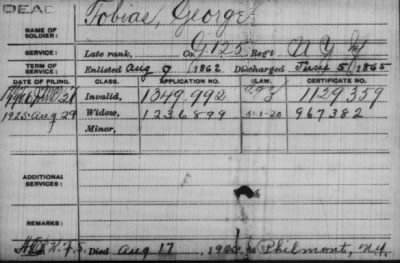 DEAD
Tobias, George
NAME OF SOLDIER:
SERVICE: Late rank, Co. G. 125 Reg't N Y Inf
TERM OF SERVICE: Enlisted Aug 9 1862 Discharged June 5, 1865
DATE OF FILING. CLASS. APPLICATION NO. LAW. CERTIFICATE NO.
27 Invalid, 1349.992 1129.359
1925 Aug 29 Widow, 1236899 5-1-20 967382
Minor,
ADDITIONAL SERVICES:
REMARKS:
Died Aug 17, 1925 at Philmont, N.Y.